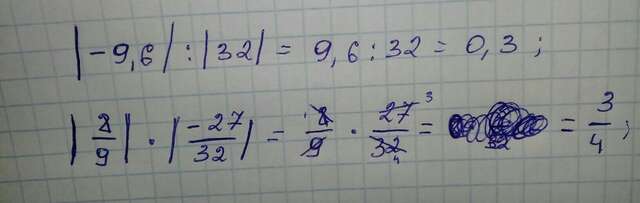 |-9,6| : |32| = 9,6 : 32 = 0,3 ;
|8/9| · |-27/32| = 8/9 · 27/32 = = 3/4 ;